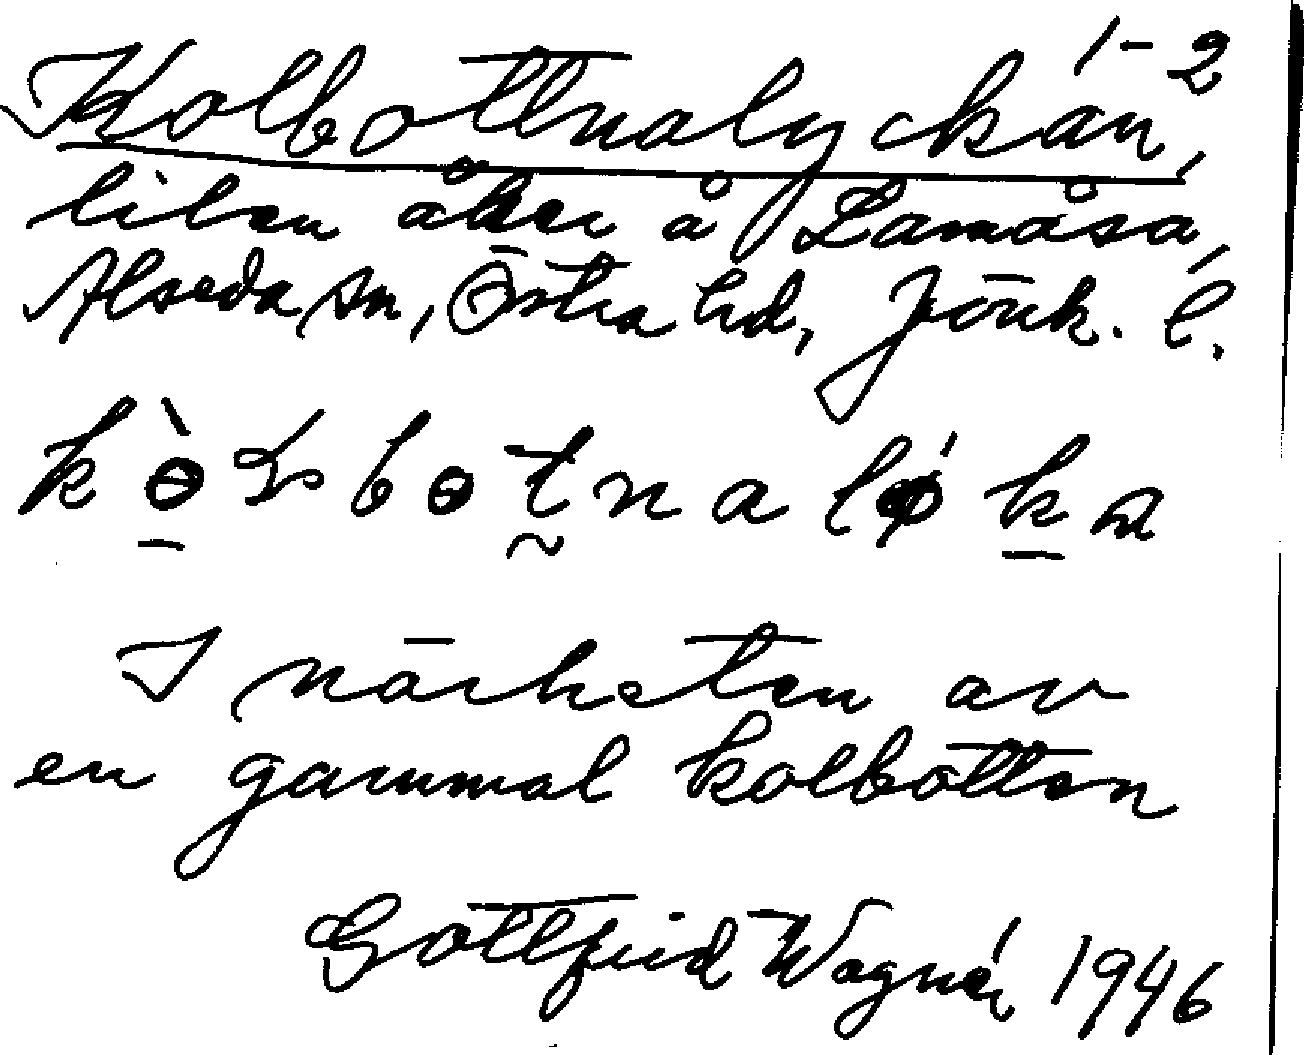 1-2
Kolbottnalyckan,
liten åker å Lamåsa,
Alseda sn, Östra hd, Jönk. l.
I närheten av
en gammal kolbotten
Gottfrid Wagnér 1946